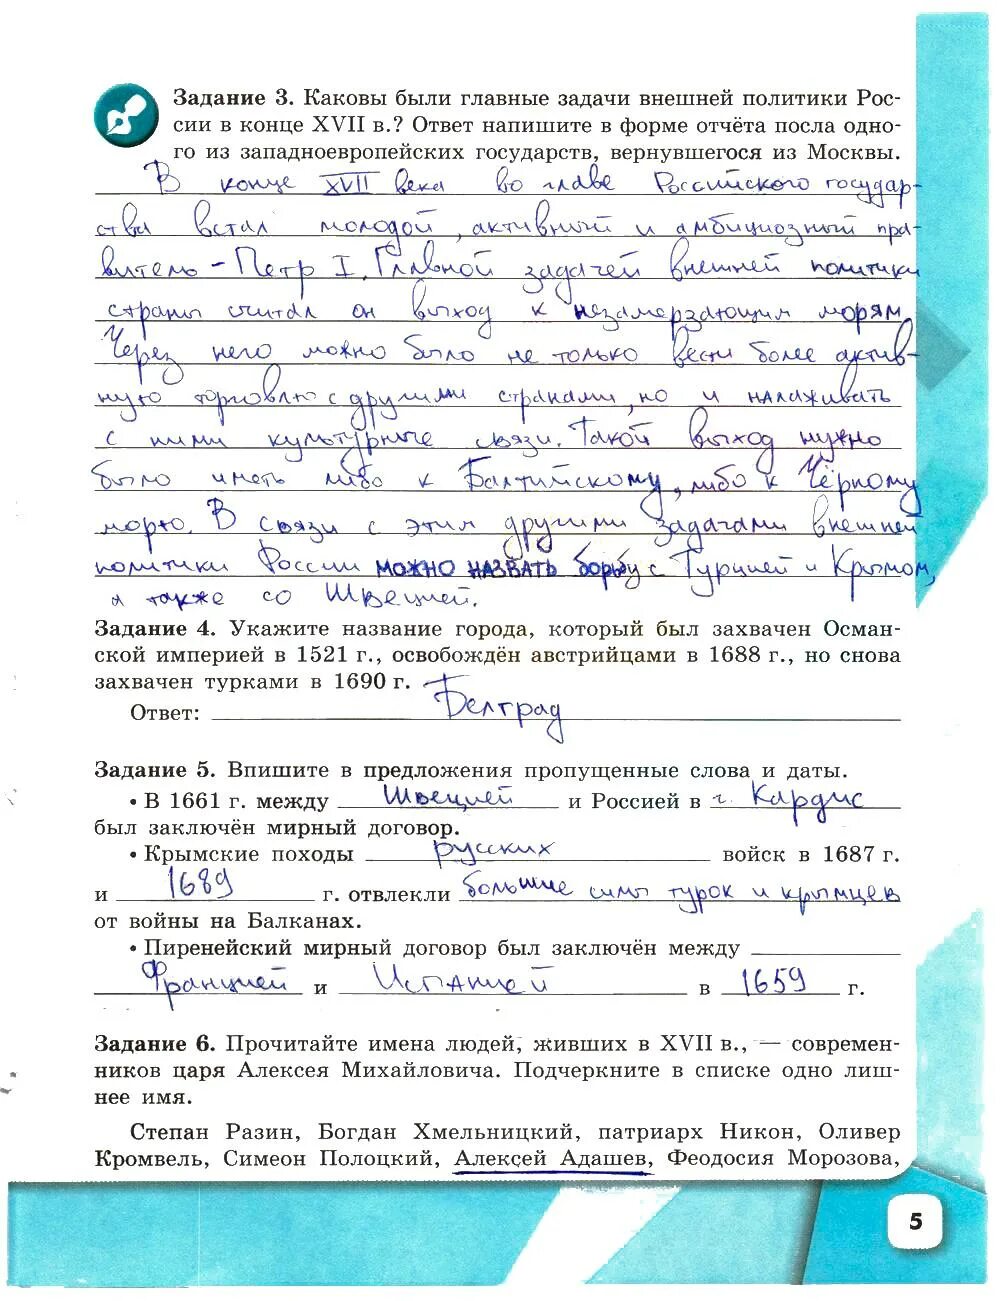 Задание 3. Каковы были главные задачи внешней политики Рос-
сии в конце XVII в.? Ответ напишите в форме отчёта посла одно-
го из западноевропейских государств, вернувшегося из Москвы.
В конце XVII века во главе Российского государ-
ства встал молодой, активный и амбициозный пра-
витель - Петр I. Главной задачей внешней политики
страны считал он выход к незамерзающим морям.
Через него можно было не только вести более актив-
ную торговлю с другими странами, но и налаживать
с ними культурные связи. Такой выход нужно
было иметь либо к Балтийскому, либо к Чёрному
морю. В связи с этим другими задачами внешней
политики России можно назвать борьбу с Турцией и Крымом,
а также со Швецией.
Задание 4. Укажите название города, который был захвачен Осман-
ской империей в 1521 г., освобождён австрийцами в 1688 г., но снова
захвачен турками в 1690 г.
Ответ: Белград
Задание 5. Впишите в предложения пропущенные слова и даты.
• В 1661 г. между Швецией и Россией в г. Кардис
был заключён мирный договор.
• Крымские походы русских войск в 1687 г.
и 1689 г. отвлекли большие силы турок и крымцев
от войны на Балканах.
• Пиренейский мирный договор был заключён между
Францией и Испанией в 1659 г.
Задание 6. Прочитайте имена людей, живших в XVII в., — современ-
ников царя Алексея Михайловича. Подчеркните в списке одно лиш-
нее имя.
Степан Разин, Богдан Хмельницкий, патриарх Никон, Оливер
Кромвель, Симеон Полоцкий, Алексей Адашев, Феодосия Морозова,
5